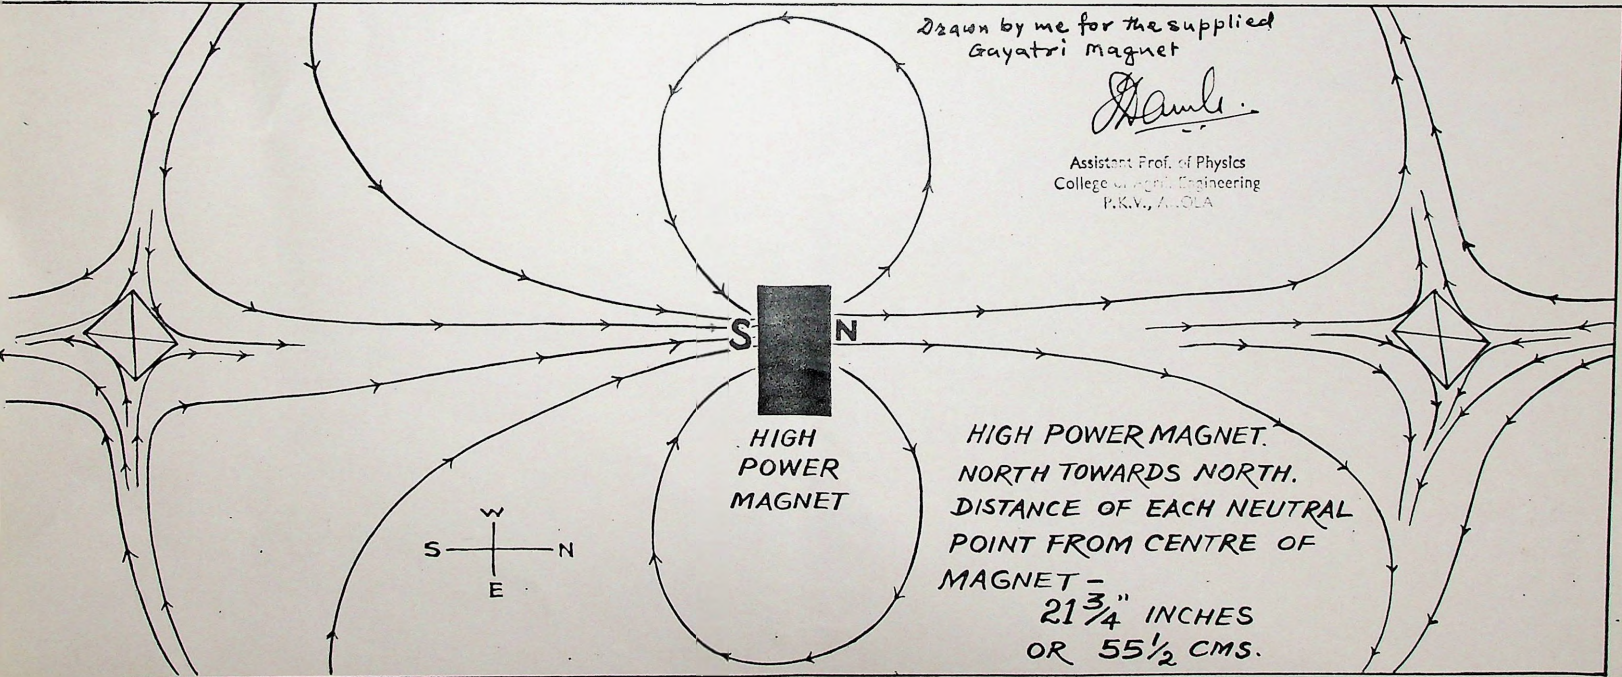 Drawn by me for the supplied
Gayatri Magnet
Assistant Prof. of Physics
College of Agri. Engineering
P.K.V., A
S
N
HIGH
POWER
MAGNET
HIGH POWER MAGNET.
NORTH TOWARDS NORTH.
DISTANCE OF EACH NEUTRAL
POINT FROM CENTRE OF
MAGNET –
21 3/4" INCHES
OR 55 1/2 CMS.
W
S
N
E